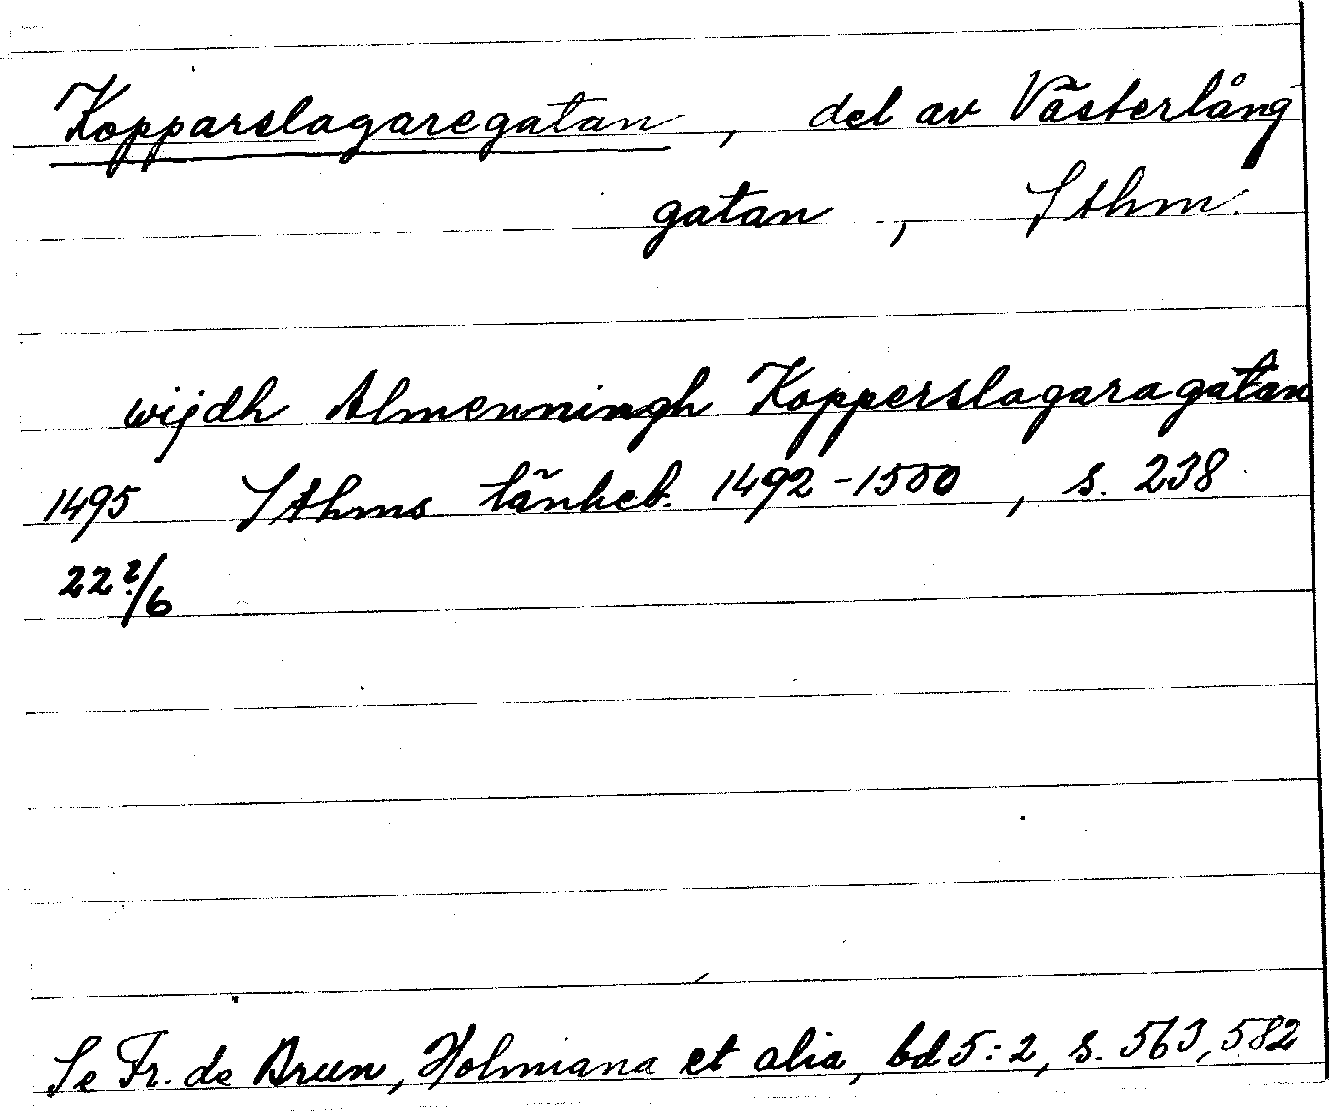 Kopparslagaregatan, del av Västerlång
gatan, Sthm.
wijdh Almenningh Kopperslagaragatan
1495 Sthms tänkeb. 1492-1500, s. 238
22 ?/6
Se Fr. de Brun, Holmiana et alia, bd 5:2, s. 563, 582